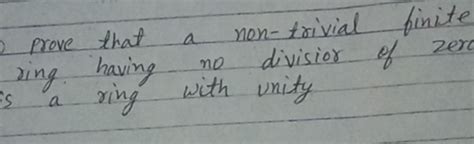 prove that a non-trivial finite
ring. having no divisior of zero
is a ring with unity